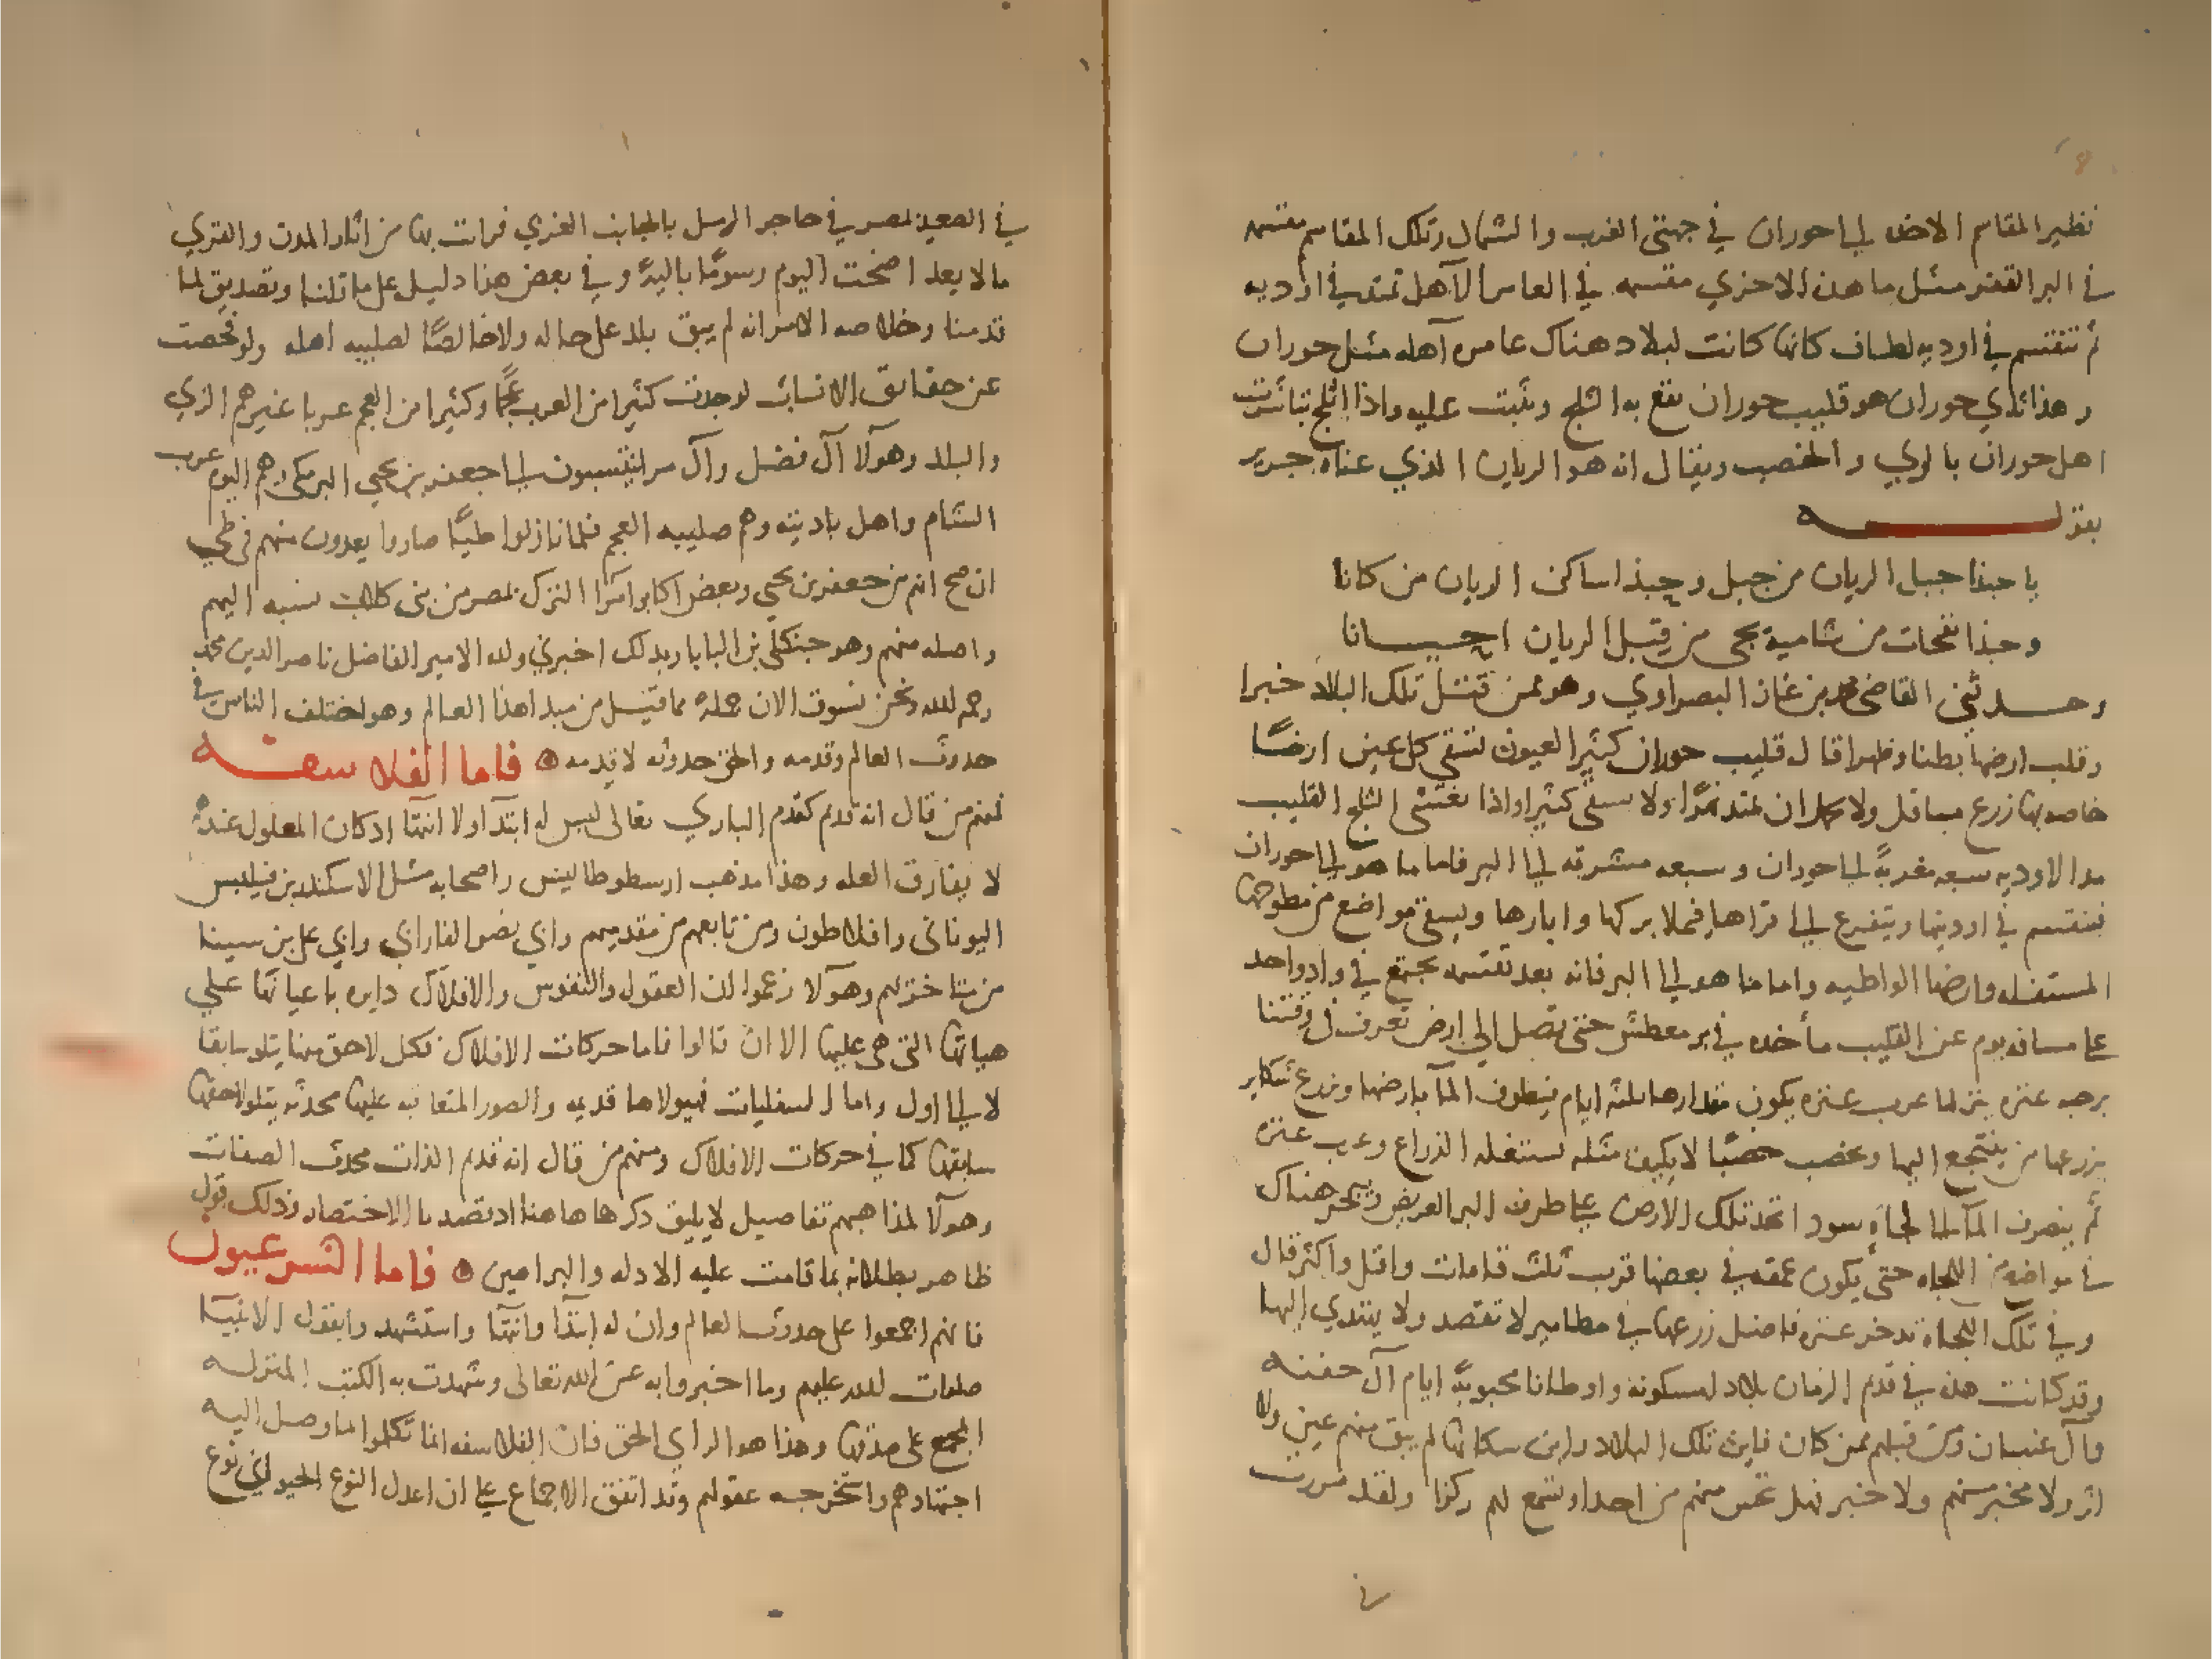 نظير المقاسم الاخذ الى حوران في جهتي الغرب والشمال وتلك المقاسم مقتسمه
في البر القفر مثل ما هذه الاخري مقتسمه في العامر الآهل تمتد في اوديه
ثم تنقسم في اوديه لطاف كانها كانت لبلاد هناك عامره آهله مثل حوران
وهذا الذي حوران هو قليب حوران يقع به الثلج ويثبت عليه واذا اثلج تباشرت
اهل حوران بالري والخصب ويقال انه هو الريان الذي عناه جرير
بقوله
يا حبذا جبل الريان من جبل وحبذا ساكن الريان من كانا
وحبذا نفحات من يمانية تجي من قبل الريان احيانا
وحدثني القاضي محمد بن غاز البصراوي وهو ممن قتل تلك البلاد خبرا
وقلب ارضها بطنا وظهرا قال قليب حوران كثير العيون تسقي كل عين ارضا
خاصه بها زرع مباقل ولا يمكن ان تمتد نهرا ولا تسقي كثيرا واذا تغشي الثلج القليب
مدا الاوديه سبعه مغربة الى حوران وسبعه مشرقه الى البر فاما ما هو الى حوران
فينقسم في اوديتها ويتفرع الى قراها فيملا بركها وابارها ويسقي مواضع من سطوحها
المستفله وارضها الواطيه واما ما هو الى البر فانه بعد تقسمه يجتمع في واد واحد
على مسافه يوم عن القليب ماخذه في بر معطش حتى يصل الى ارض تعرف في وقتنا
برحبه عنزه ينزلها عرب عنزه يكون مقدارها ثلثة ايام فيطوف المآ بارضها ويزرع
يزرعها من ينتجع اليها وتخصب خصبا لا يكيف مثله تستغله الزراع وعرب عنزه
ثم ينصرف المآ الى لجاه سود اتخذ تلك الارض على طرف البر العريض ويبحر هناك
في مواضع من اللجاه حتى يكون عمقه في بعضها قرب ثلث قامات واقل واكثر قال
وفي تلك اللجاه تدخر عنزه فاضل زرعها في مطامير لا تقصد ولا يهتدي اليها
وقد كانت هذه في قديم الزمان بلاد مسكونه واوطانا محبوبة ايام آل جفنه
وآل غسان ومن قبلهم ممن كان فاين تلك البلاد واين سكانها لم يبق منهم عين ولا
اثر ولا مخبر منهم ولا خبر فهل تحس منهم من احد او تسمع لهم ركزا ولقد مررت
في الصعيد بمصر في حاجر الرمل بالجانب الغربي فرايت بها من اثار المدن والقري
ما لا يعد اضحت اليوم رسوما باليه وفي بعض هذا دليل على ما قلنا وتصديق لما
قدمنا وخلاصه الامر انه لم يبق بلد على حاله ولا خالصا لصليبه اهله ولو فحصت
عن حقايق الانساب لوجدت كثيرا من العرب عجما وكثيرا من العجم عربا غيرهم الزي
والبلد وهولآ آل فضل وآل مرا ينتسبون الى جعفر بن يحيي البرمكي وهم اليوم عرب
الشام واهل باديته وهم صليبه العجم فلما نازلوا طيا صاروا يعدون منهم في طي
ان صح انهم من جعفر بن يحيي وبعض اكابر امرا الترك بمصر من بني كلاب نسبه اليهم
واصله منهم وهو جنكلي بن البابا وبذلك اخبرني ولده الامير الفاضل ناصر الدين محمد
رحمه الله ونحن نسوق الان جملة مما قيل من مبدا هذا العالم وهو اختلف الناس في
حدوث العالم وقدمه والحق حدوثه لا قدمه ۞ فاما الفلاسفه
فمنهم من قال انه قديم كقدم الباري تعالى ليس له ابتدآ ولا انتهآ اذ كان المعلول عنده
لا يفارق العله وهذا مذهب ارسطوطاليس واصحابه مثل الاسكندر بن فيلبس
اليوناني وافلاطون ومن تابعهم من مقدميهم وابي نصر الفارابي وابي علي بن سينا
من متاخريهم وهولآ زعموا ان العقول والنفوس والافلاك دايره باعيانها علي
هياتها التي هي عليها الا ان قالوا فاما حركات الافلاك فكل لاحق منها يتلو سابقا
لا الى اول واما السفليات فهيولاها قديمه والصور المتعاقبه عليها محدثه يتلو لاحقها
سابقها كما في حركات الافلاك ومنهم من قال انه قديم الذات محدث الصفات
وهولآ لمذاهبهم تفاصيل لا يليق ذكرها هاهنا اذ قصدنا الاختصار وذلك قول
ظاهر بطلانه بما قامت عليه الادله والبراهين ۞ فاما الشرعيون
فانهم اجمعوا على حدوث العالم وان له ابتدآ وانتهآ واستشهدوا بقول الانبيا
صلوات الله عليهم وما اخبروا به عن الله تعالى وشهدت به الكتب المنزله
المجمع على صدقها وهذا هو الراي الحق فان الفلاسفه انما تكلموا بما وصل اليه
اجتهادهم واستخرجه عقولهم وقد اتفق الاجماع على ان اعدل النوع الحيواني نوع